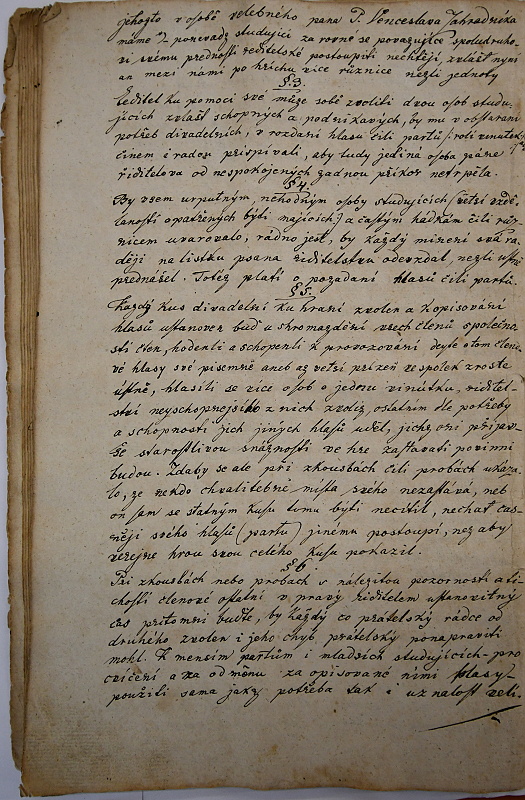 jehožto v osobě velebného pana P. Venceslava Zahradníka
máme – poněvadž studující za rovné se považujíce spoludruho-
vi svému přednosti ředitelské postoupiti nechtějí, zvlášť nyní
an mezi námi po hříchu více různice nežli jednoty
§. 3.
Ředitel ku pomoci své může sobě zvoliti dvou osob studu-
jících zvlášť schopných a podnikavých, by mu v obstarání
potřeb divadelních, v rozdání hlasů čili partů
činem i radou přispívali, aby tudy jediná osoba páně
ředitelova od nespokojených žádnou příkoř netrpěla.
§ 4.
By všem urputným, nehodným osoby studujících (větší vzdě-
laností opatřených býti majících) a častým hádkám čili růz-
nicem uvarovalo, rádno jest, by každý mínění svá ra-
ději na lístku psaná ředitelstvu odevzdal, nežli ústně
přednášel. Totéž platí o požádání hlasů čili partů.
§ 5.
Každý kus divadelní ku hraní zvolen a k opisování
hlasů ustanoven buď u shromáždění všech členů společno-
sti čten, hodenli a schopenli k provozování dejtež o tom členo-
vé hlasy své písemně aneb až větší přízeň ve spolek zroste
ústně, hlásili se více osob o jednu vinutku, ředitel-
ství nejschopnejšího z nich zvolíc, ostatním dle potřeby
a schopnosti jich jiných hlasů uděl, jichž oni přijav-
še starostlivou snážností ve hře zastávati povinni
budou. Zdaby se ale při zkouškách čili probách ukáza-
lo, že někdo chvalitebně místa svého nezastává, neb
on sám se statným kusu tomu býti necítil, nechať čas-
něji svého hlasů (partu) jinému postoupí, než aby
veřejně hrou svou celého kusu pokazil.
§ 6.
Při zkouškách nebo probách s náležitou pozorností a ti-
chostí členové ostatní v pravý ředitelem ustanovitný
čas přítomni buďte, by každý co přátelský rádce od
druhého zvolen i jeho chyb, přátelsky ponapraviti
mohl. K menším partům i mladších studujících – pro
cvičení a za odměnu za opisované nimi hlasy –
použiti sama jaký potřeba tak i uznalost velí.